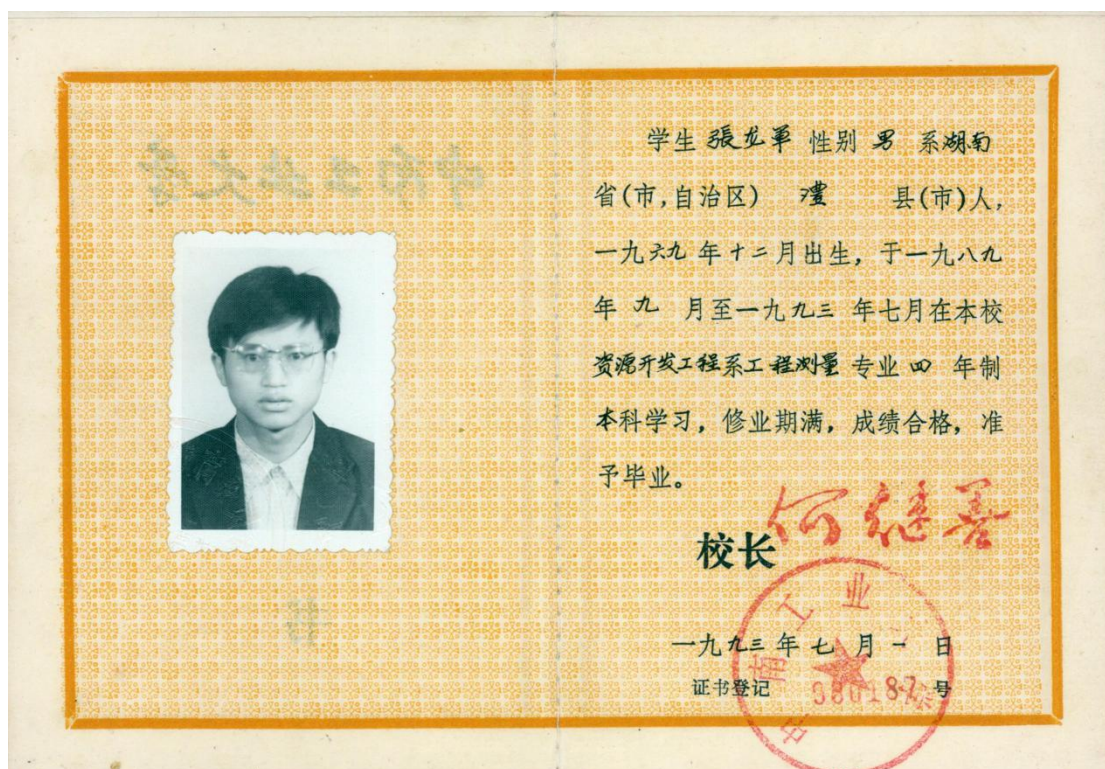 学生 張龙軍 性别 男 系湖南
省(市,自治区) 澧 县(市)人,
一九六九年十二月出生,于一九八九
年 九 月至一九九三 年七月在本校
资源开发工程系工程测量 专业 四 年制
本科学习,修业期满,成绩合格,准
予毕业。
校长 何继善
一九九三年 七 月 一 日
证书登记 号